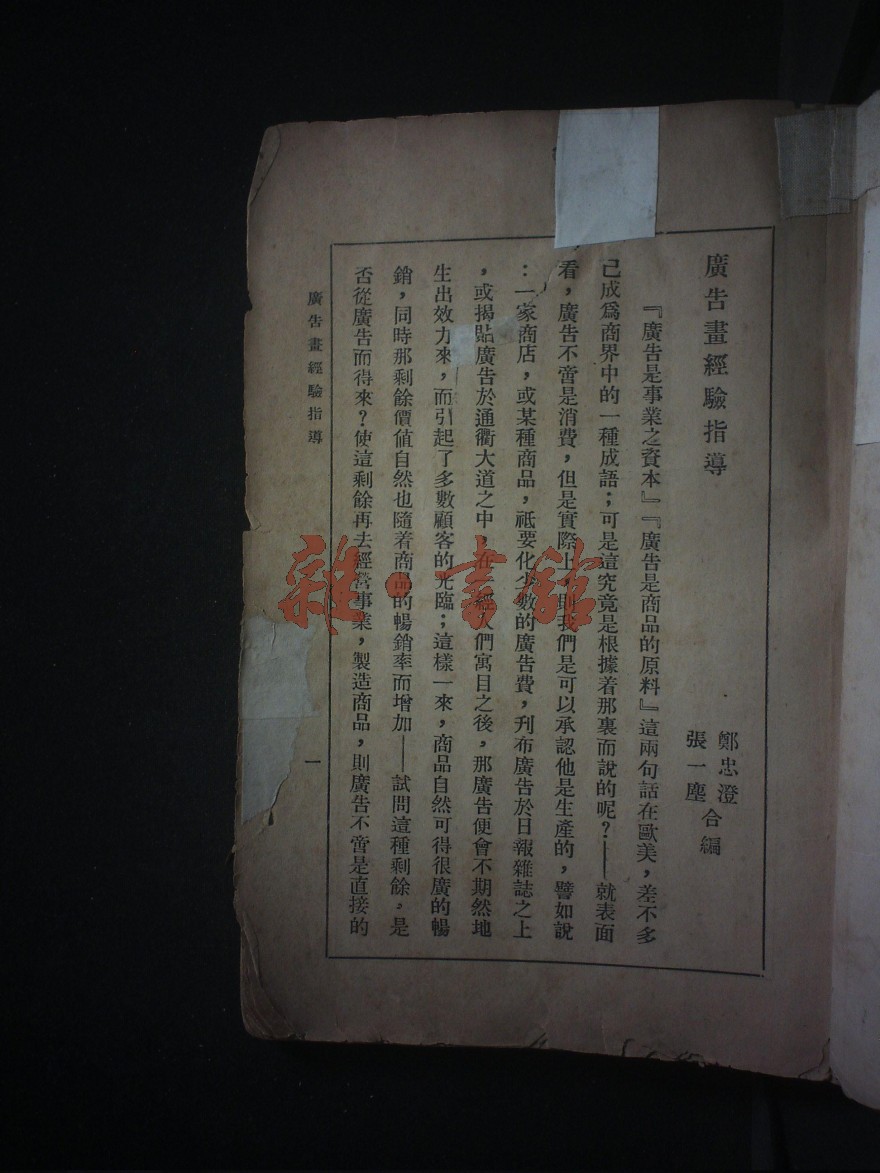 廣告畫經驗指導
鄭忠澄
張一塵
合編
『廣告是事業之資本』『廣告是商品的原料』這兩句話在歐美，差不多
己成爲商界中的一種成語；可是這究竟是根據着那裏而說的呢？——就表面
看，廣告不啻是消費，但是實際上，則我們是可以承認他是生產的，譬如說
：一家商店，或某種商品，祗要化少數的廣告費，刋布廣告於日報雜誌之上
，或揭貼廣告於通衢大道之中，在經人們寓目之後，那廣告便會不期然地
生出效力來，而引起了多數顧客的光臨；這樣一來，商品自然可得很廣的暢
銷，同時那剩餘價値自然也隨着商品的暢銷率而增加——試問這種剩餘，是
否從廣告而得來？使這剩餘再去經營事業，製造商品，則廣告不啻是直接的
廣告畫經驗指導
一
雜·書館